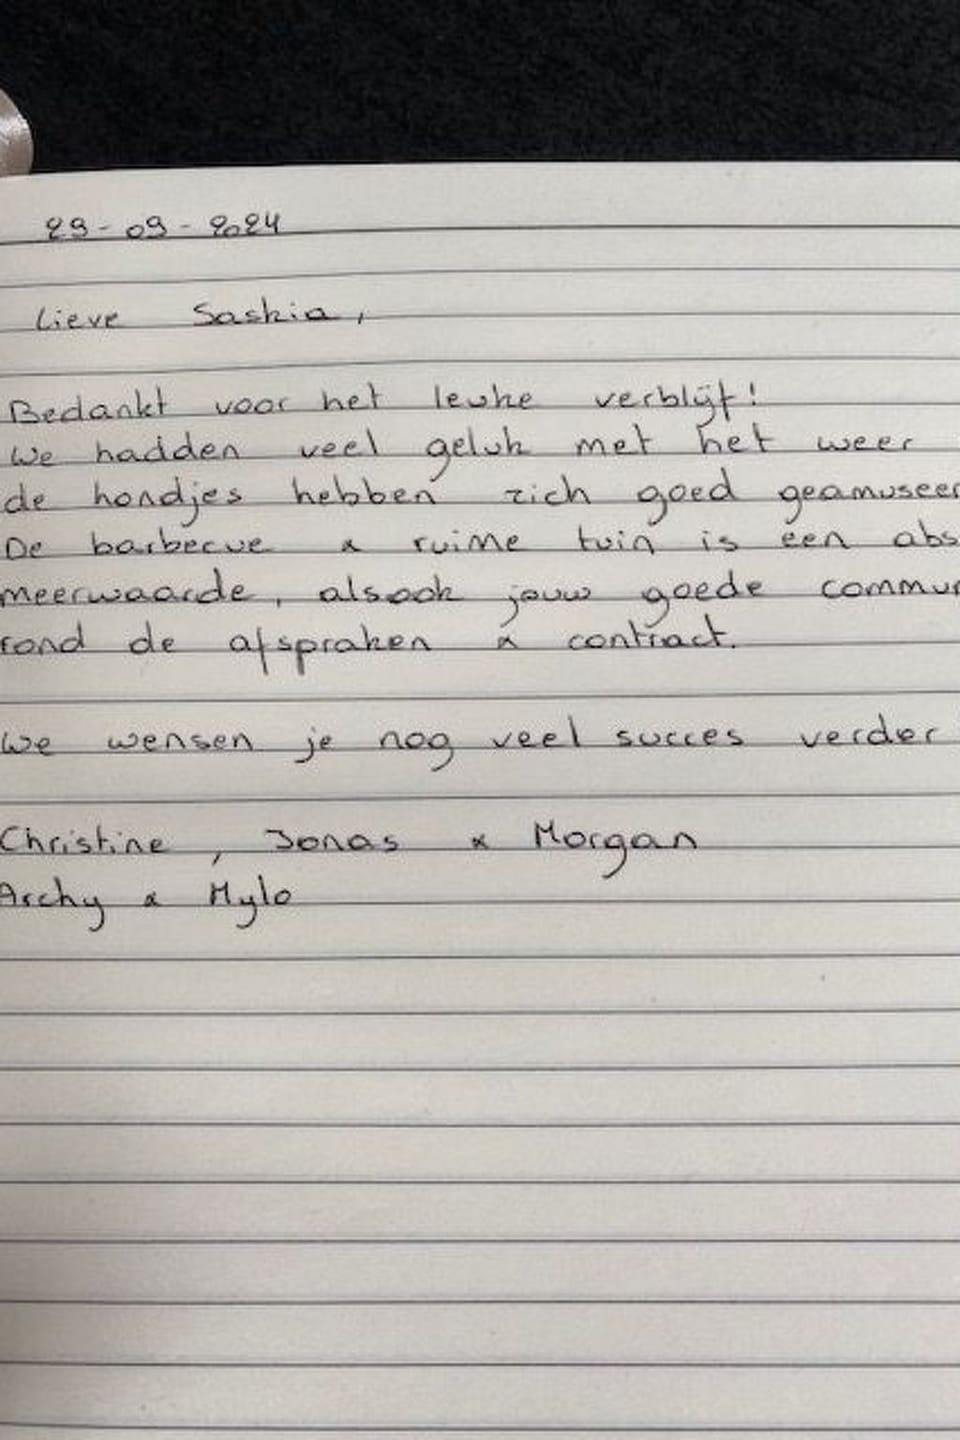 29-09-2024
Lieve Saskia,
Bedankt voor het leuke verblijf!
We hadden veel geluk met het weer
de hondjes hebben zich goed geamuseer
De barbecue & ruime tuin is een abs
meerwaarde, alsook jouw goede commun
rond de afspraken & contract.
We wensen je nog veel succes verder
Christine, Jonas & Morgan
Archy & Mylo